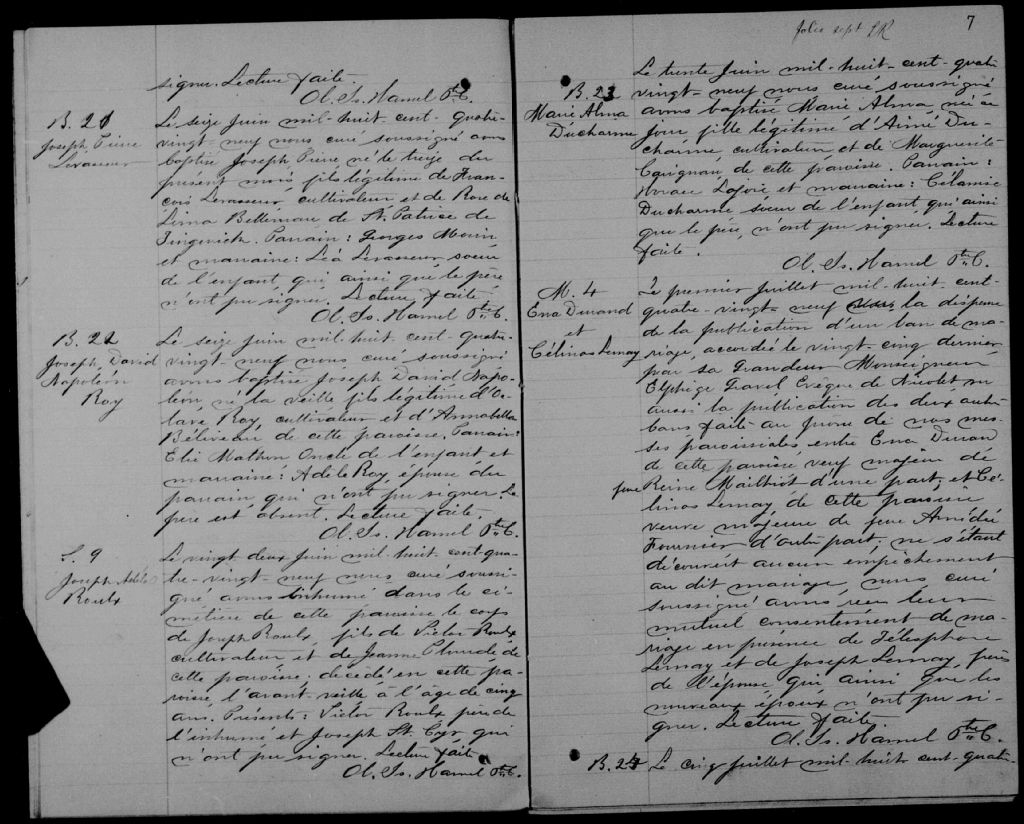 signer. Lecture faite.
Ol. Is. Hamel Ptre C.
B. 21
Joseph Pierre
Levasseur
Le seize Juin mil-huit-cent-quatre-
vingt-neuf nous curé soussigné avons
baptisé Joseph Pierre né le treize du
présent mois, fils légitime de Fran-
çois Levasseur, cultivateur et de Rose de
Lima Bellemare de St. Patrice de
Tingwick. Parrain: Georges Morin
et marraine: Léa Levasseur, soeur
de l'enfant, qui ainsi que le père
n'ont pu signer. Lecture faite.
Ol. Is. Hamel Ptre C.
B. 22
Joseph, David
Napoléon
Roy
Le seize Juin mil-huit-cent-quatre-
vingt-neuf nous curé soussigné
avons baptisé Joseph David Napo-
léon, né la veille fils légitime d'Oc-
tave Roy, cultivateur et d'Annabella
Béliveau de cette paroisse. Parrain:
Elie Mathon Oncle de l'enfant et
marraine: Adèle Roy, épouse du
parrain qui n'ont pu signer. Le
père est absent. Lecture faite.
Ol. Is. Hamel Ptre C.
S. 9
Joseph
Roulx
Le vingt-deux Juin mil-huit-cent-qua-
tre-vingt-neuf nous curé soussi-
gné avons inhumé dans le ci-
metière de cette paroisse le corps
de Joseph Roulx, fils de Victor Roulx
cultivateur et de Jeanne de
cette paroisse, décédé en cette pa-
roisse l'avant-veille à l'âge de cinq
ans. Présents: Victor Roulx père de
l'inhumé et Joseph St. Cyr qui
n'ont pu signer. Lecture faite
Ol. Is. Hamel Ptre C.
folio sept 7
B. 23
Marie Alma
Ducharme
Le trente Juin mil-huit-cent-quatre
vingt-neuf nous curé soussigné
avons baptisé Marie Alma, née ce
jour fille légitime d'Aimé Du-
charme, cultivateur et de Marguerite
Carignan de cette paroisse. Parrain:
Horace Lajoie et marraine: Célamise
Ducharme soeur de l'enfant qui ainsi
que le père, n'ont pu signer. Lecture
faite.
Ol. Is. Hamel Ptre C.
M. 4
Ena Durand
et
Célinas Lemay
Le premier Juillet mil-huit-cent-
quatre-vingt-neuf la dispense
de la publication d'un ban de ma-
riage, accordée le vingt-cinq dernier
par sa Grandeur Monseigneur
Elphège Gravel Evêque de Nicolet vu
aussi la publication des deux autres
bans faite au prône de nos mes-
ses paroissiales, entre Ena Durand
de cette paroisse, veuf majeur de
feue Reine Mailhiot d'une part, et Cé-
linas Lemay, de cette paroisse
veuve majeure de feu Amédée
Fournier d'autre part, ne s'étant
découvert aucun empêchement
au dit mariage, nous curé
soussigné avons reçu leur
mutuel consentement de ma-
riage en présence de Télesphore
Lemay et de Joseph Lemay, frères
de l'épouse qui ainsi que les
nouveaux époux n'ont pu si-
gner. Lecture faite.
Ol. Is. Hamel Ptre C.
B. 24 Le cinq Juillet mil-huit-cent-quatre-